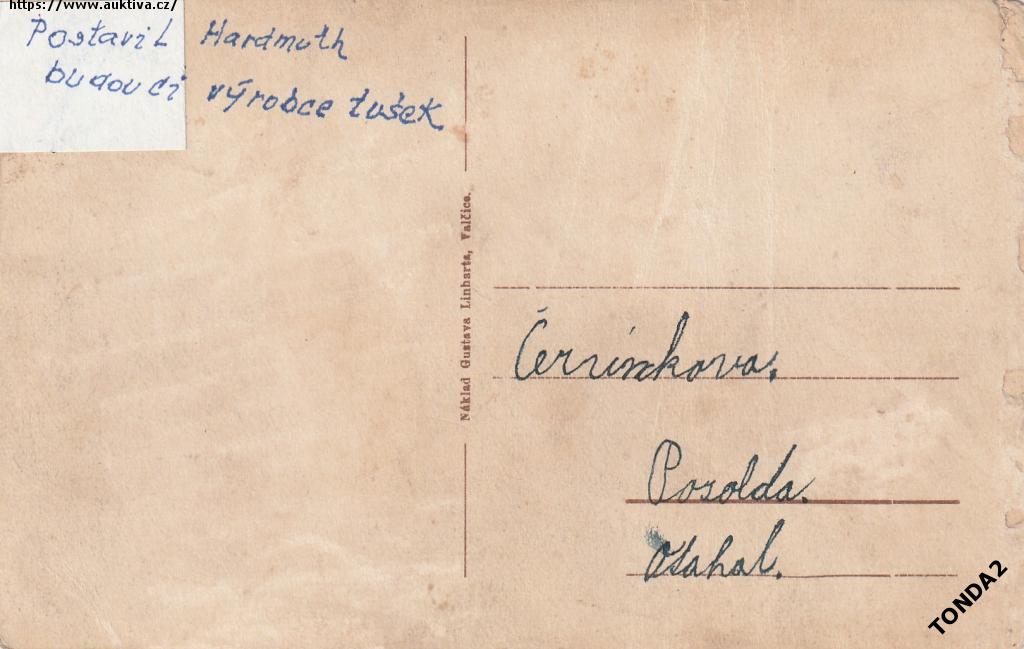 https://www.auktiva.cz/
Postavil Hardmuth
budoucí výrobce tušek
Náklad Gustava Linharta, Valčice.
Černínkova.
Posolda.
Otahal.
TONDA2